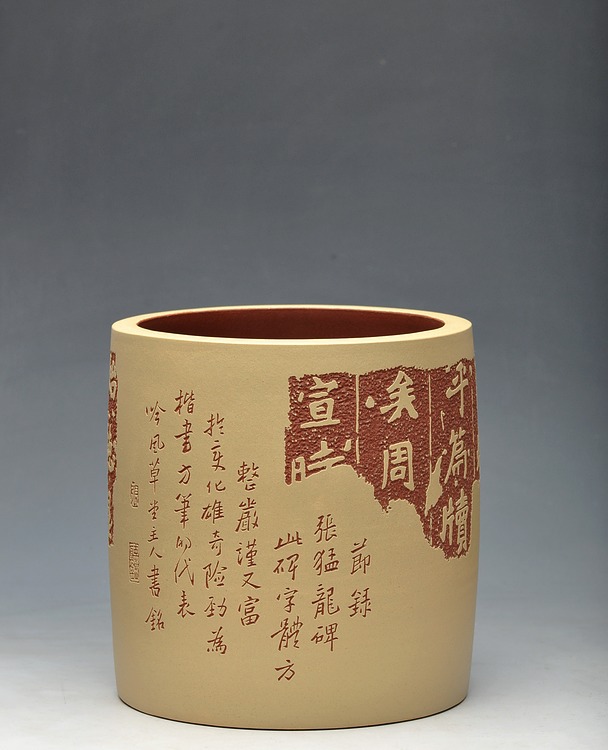 平篇牘
矣周
宣時
節錄
張猛龍碑
此碑字體方
整嚴謹又富
於变化雄奇险勁為
楷書方筆的代表
吟風草堂主人書銘